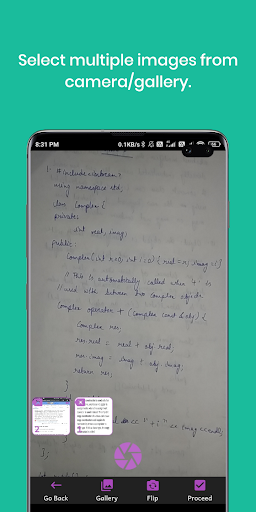 Select multiple images from
camera/gallery.
8:31 PM
0.1KB/s
1. #include<iostream>
using namespace std;
class Complex {
private:
int real, imag;
public:
Complex(int r=0, int i=0) { real=r; imag=i;}
// This is automatically called when '+' is
// used with between two complex objects
Complex operator + (Complex const &obj) {
Complex res;
res.real = real + obj.real;
res.imag = imag + obj.imag;
return res;
}
<< "+i" << imag <<
}
};
Go Back
Gallery
Flip
Proceed